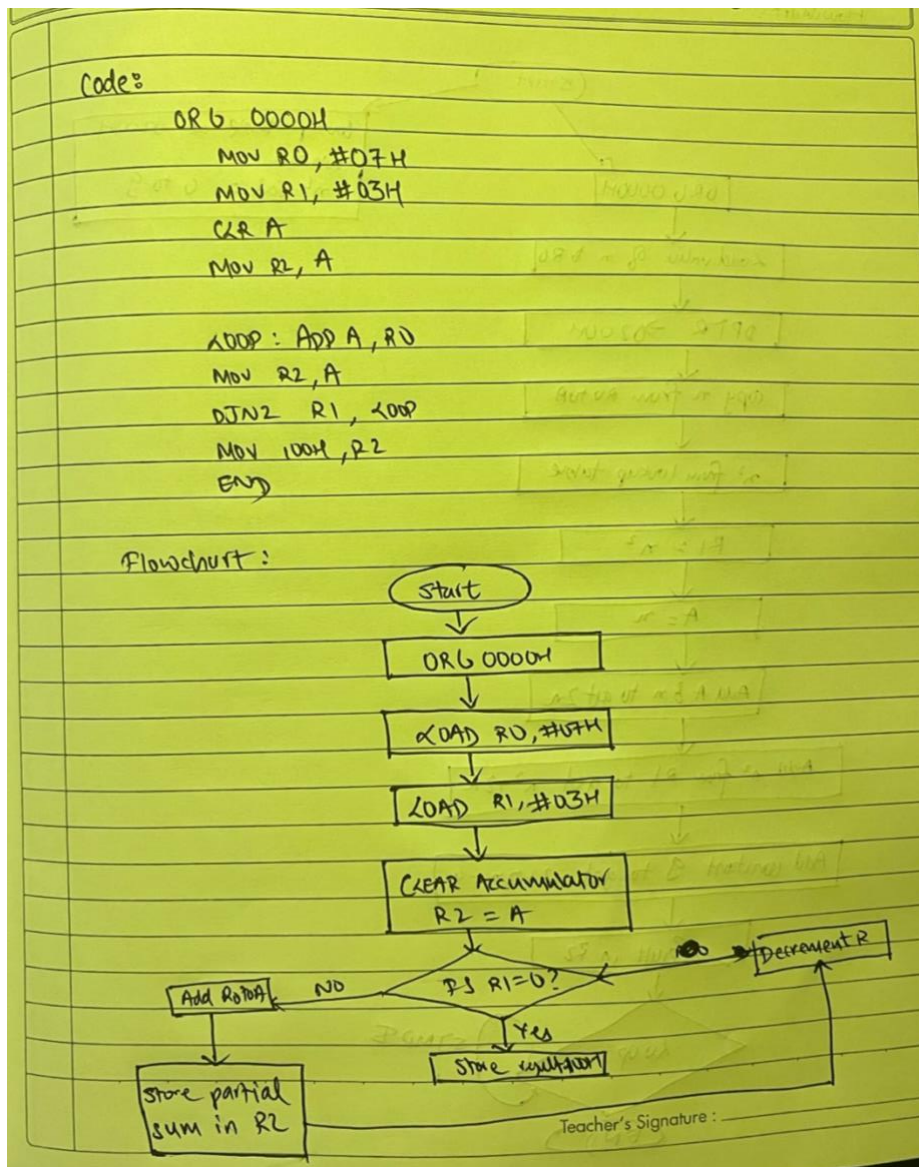 Code:
ORG 0000H
MOV R0, #07H
MOV R1, #03H
CLR A
MOV R2, A
LOOP: ADD A, R0
MOV R2, A
DJNZ R1, LOOP
MOV 100H, R2
END
Flowchart:
Start
ORG 0000H
LOAD R0, #07H
LOAD R1, #03H
CLEAR Accumulator
R2 = A
Is R1=0?
Decrement R
NO
Add R0 to A
Yes
Store result
store partial
sum in R2
Teacher's Signature :